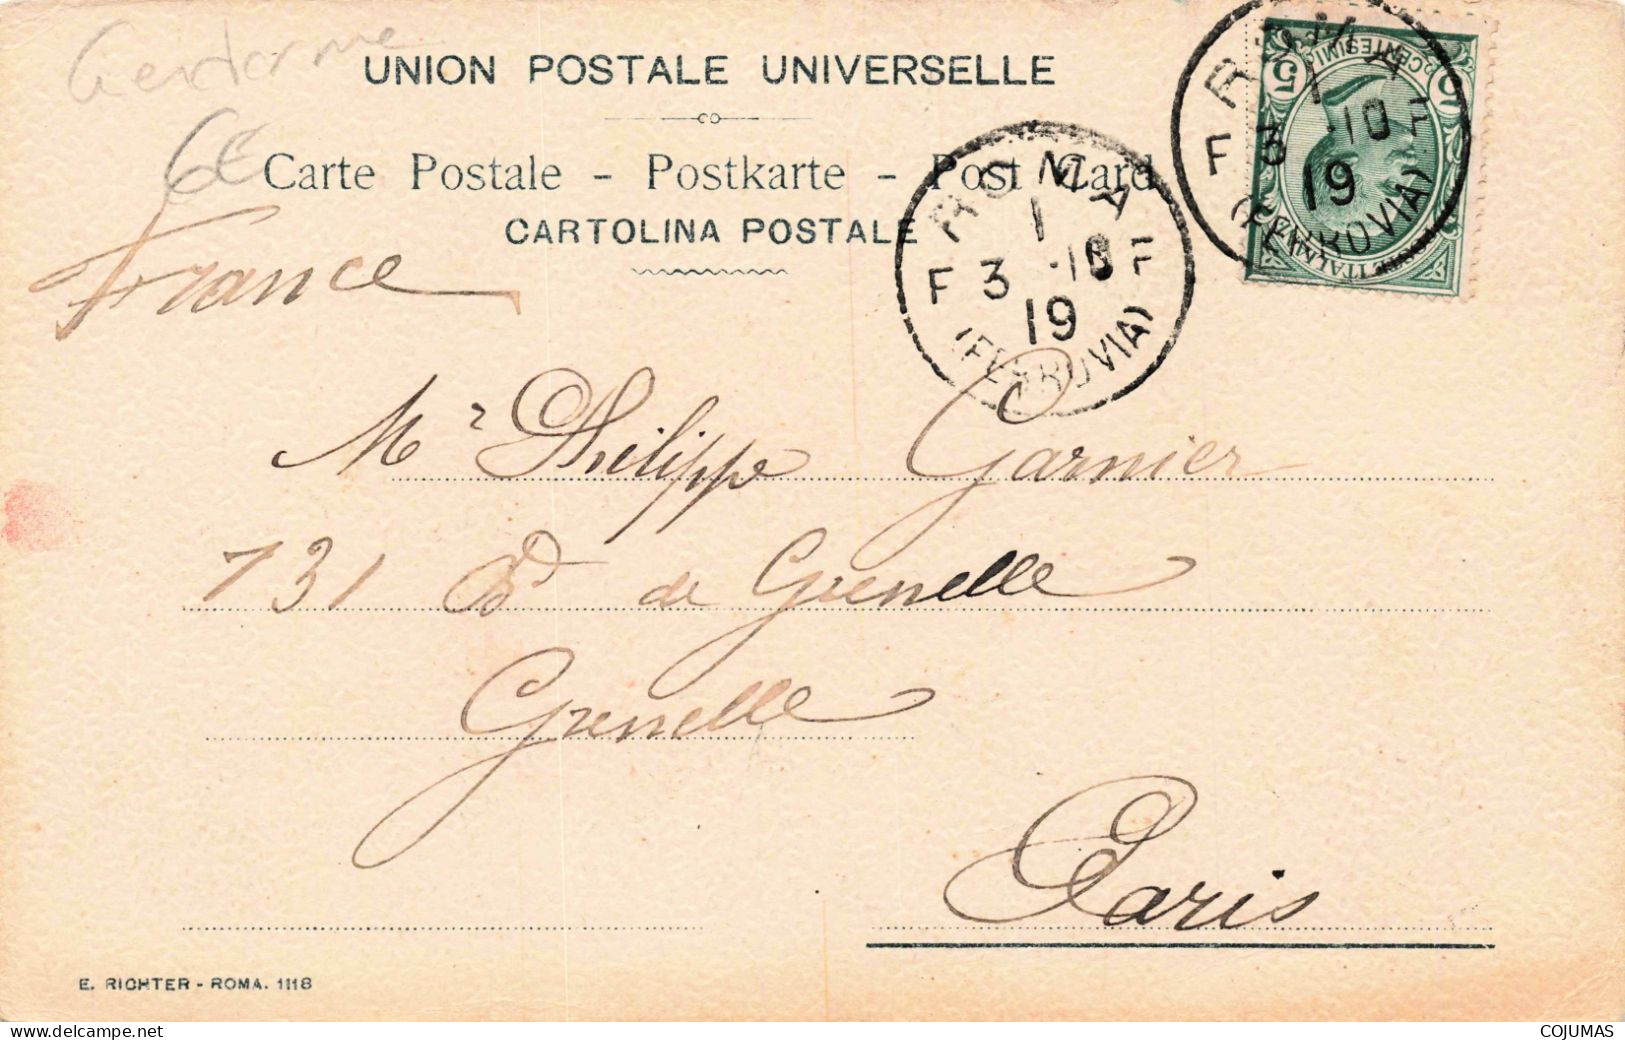 Gendarme
6€
UNION POSTALE UNIVERSELLE
Carte Postale - Postkarte - Post Card
CARTOLINA POSTALE
France
ROMA
1
F 3 .10 F
19
(FERROVIA)
ROMA
1
F 3 .10 F
19
(FERROVIA)
5 CENTESIMI 5
Mr Philippe Garnier
131 Bd de Grenelle
Grenelle
Paris
E. RICHTER - ROMA. 1118
delcampe.net
COJUMAS